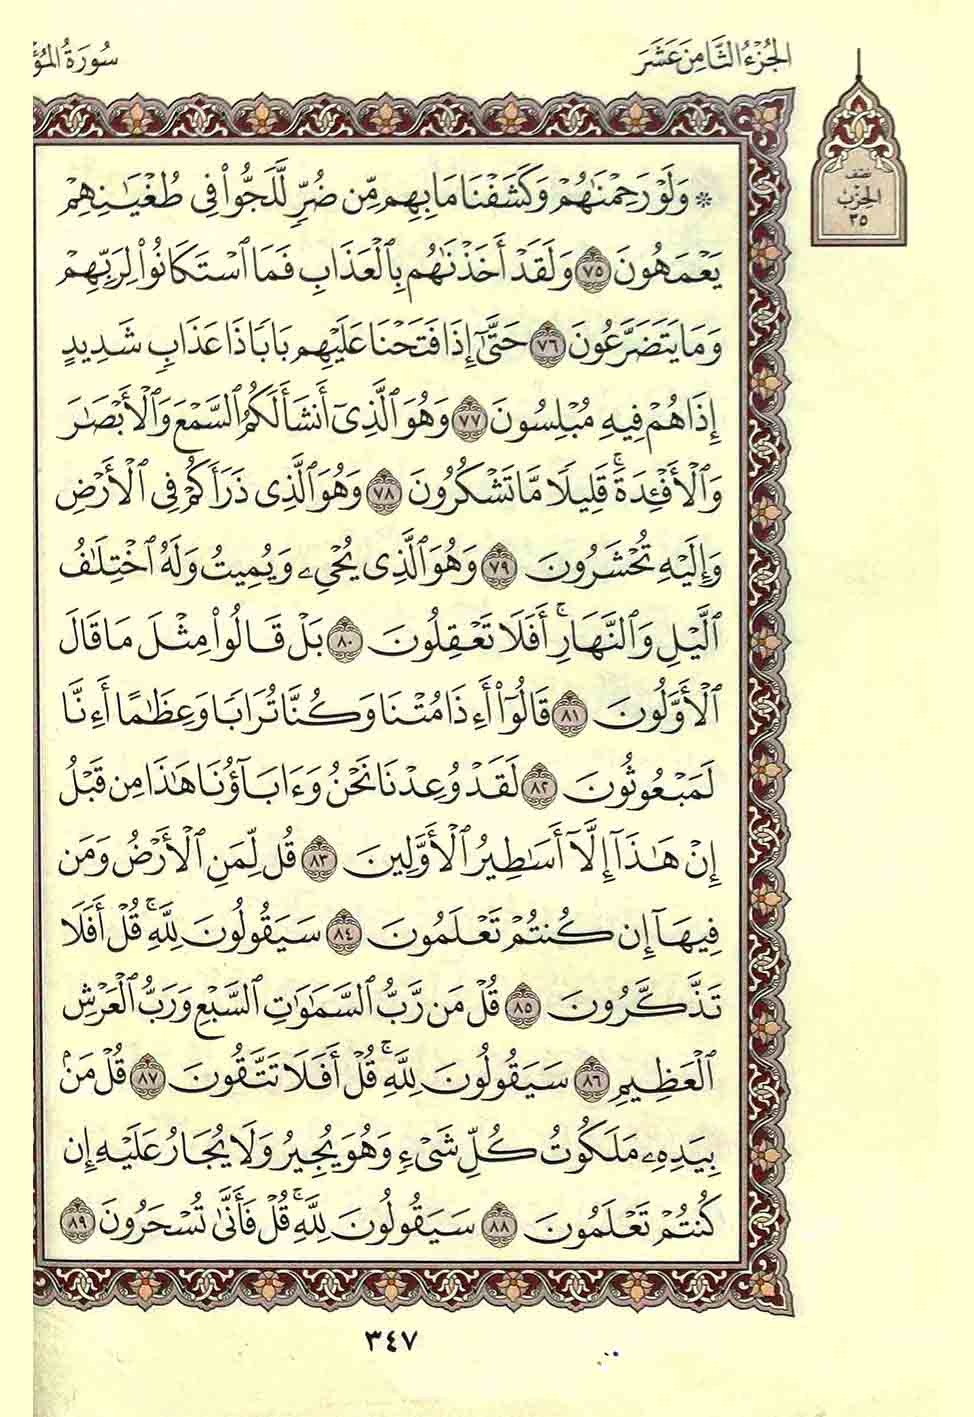 الجُزْءُ الثَّامِنَ عَشَرَ
سُورَةُ المُؤ
نصف
الحزب
٣٥
۞ وَلَوْ رَحِمْنَٰهُمْ وَكَشَفْنَا مَا بِهِم مِّن ضُرٍّ لَّلَجُّوا۟ فِى طُغْيَٰنِهِمْ
يَعْمَهُونَ ٧٥ وَلَقَدْ أَخَذْنَٰهُم بِٱلْعَذَابِ فَمَا ٱسْتَكَانُوا۟ لِرَبِّهِمْ
وَمَا يَتَضَرَّعُونَ ٧٦ حَتَّىٰٓ إِذَا فَتَحْنَا عَلَيْهِم بَابًا ذَا عَذَابٍ شَدِيدٍ
إِذَا هُمْ فِيهِ مُبْلِسُونَ ٧٧ وَهُوَ ٱلَّذِىٓ أَنشَأَ لَكُمُ ٱلسَّمْعَ وَٱلْأَبْصَٰرَ
وَٱلْأَفْـِٔدَةَ ۚ قَلِيلًا مَّا تَشْكُرُونَ ٧٨ وَهُوَ ٱلَّذِى ذَرَأَكُمْ فِى ٱلْأَرْضِ
وَإِلَيْهِ تُحْشَرُونَ ٧٩ وَهُوَ ٱلَّذِى يُحْىِۦ وَيُمِيتُ وَلَهُ ٱخْتِلَٰفُ
ٱلَّيْلِ وَٱلنَّهَارِ ۚ أَفَلَا تَعْقِلُونَ ٨٠ بَلْ قَالُوا۟ مِثْلَ مَا قَالَ
ٱلْأَوَّلُونَ ٨١ قَالُوٓا۟ أَءِذَا مِتْنَا وَكُنَّا تُرَابًا وَعِظَٰمًا أَءِنَّا
لَمَبْعُوثُونَ ٨٢ لَقَدْ وُعِدْنَا نَحْنُ وَءَابَآؤُنَا هَٰذَا مِن قَبْلُ
إِنْ هَٰذَآ إِلَّآ أَسَٰطِيرُ ٱلْأَوَّلِينَ ٨٣ قُل لِّمَنِ ٱلْأَرْضُ وَمَن
فِيهَآ إِن كُنتُمْ تَعْلَمُونَ ٨٤ سَيَقُولُونَ لِلَّهِ ۚ قُلْ أَفَلَا
تَذَكَّرُونَ ٨٥ قُلْ مَن رَّبُّ ٱلسَّمَٰوَٰتِ ٱلسَّبْعِ وَرَبُّ ٱلْعَرْشِ
ٱلْعَظِيمِ ٨٦ سَيَقُولُونَ لِلَّهِ ۚ قُلْ أَفَلَا تَتَّقُونَ ٨٧ قُلْ مَنۢ
بِيَدِهِۦ مَلَكُوتُ كُلِّ شَىْءٍ وَهُوَ يُجِيرُ وَلَا يُجَارُ عَلَيْهِ إِن
كُنتُمْ تَعْلَمُونَ ٨٨ سَيَقُولُونَ لِلَّهِ ۚ قُلْ فَأَنَّىٰ تُسْحَرُونَ ٨٩
٣٤٧